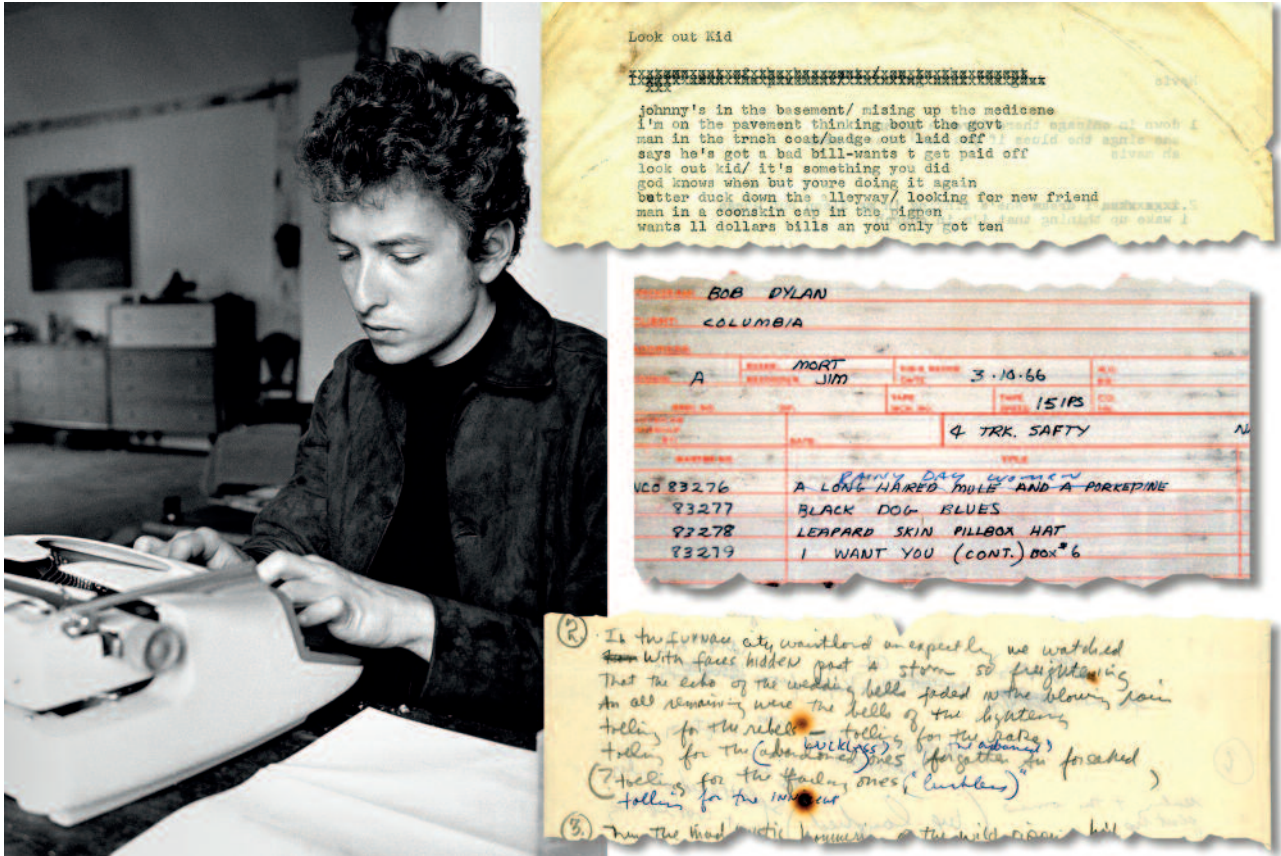 Look out Kid
johnny's in the basement/ mising up the medicene
i'm on the pavement thinking bout the govt
man in the trnch coat/badge out laid off
says he's got a bad bill-wants t get paid off
look out kid/ it's something you did
god knows when but youre doing it again
better duck down the alleyway/ looking for new friend
man in a coonskin cap in the pigpen
wants 11 dollars bills an you only got ten
BOB DYLAN
COLUMBIA
MORT
A JIM 3.10.66
TAPE SPEED 15 IPS
4 TRK. SAFTY
TITLE
RAINY DAY WOMEN
NCO 83276 A LONG HAIRED MULE AND A PORKEPINE
83277 BLACK DOG BLUES
83278 LEAPARD SKIN PILLBOX HAT
83279 I WANT YOU (CONT.) BOX #6
2. In the furnace city unexpectly we watched
With faces hidden past a storm so freightening
That the echo of the wedding bells faded in the blowing rain
An all remaining were the bells of the lightening
tolling for the rebel – tolling for the rake
(LUCKLESS)
tolling for the (abandoned) ones forsaked
(? tolling for the ones, "(luckless)" )
tolling for the INNOCENT
3. the mad mystic the wild